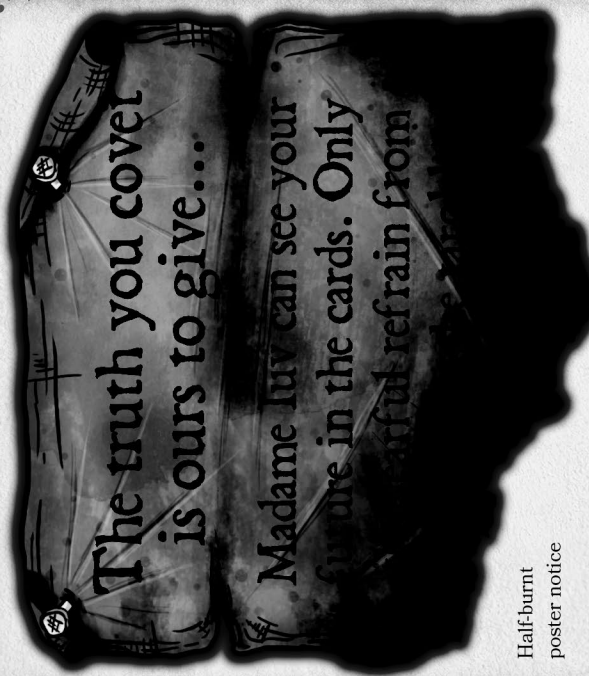 The truth you covet
is ours to give...
Madame luv can see your
future in the cards. Only
refrain from
the
Half-burnt
poster notice